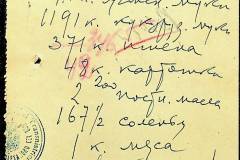 муки
1191 к. кукур. муки
371 к. пшена
48 к. картошки
2 200 постн. масла
167 1/2 соленья
1 к. мяса